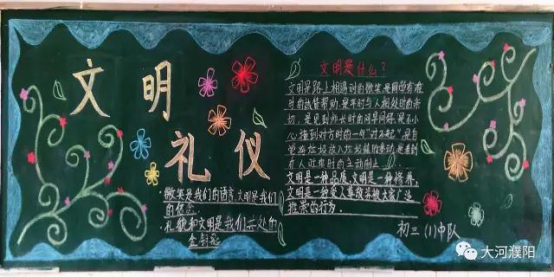 文明
礼仪
微笑是我们的语言,文明是我们
的
礼貌和文明是我们共处的
金钥匙
文明是什么?
文明是路上相遇时的微笑,是同学有难
时的热情帮助,是平时与人相处时的亲
切,是见到师长时的问早问好,是不小
心撞到对方时的一句"对不起",是自
觉将垃圾放入垃圾箱的举动,是看到
有人吐痰时的主动制止
文明是一种品质,文明是一种修养,
文明是一种受人尊敬并被大家广泛
推崇的行为.
初三(1)中队
大河濮阳